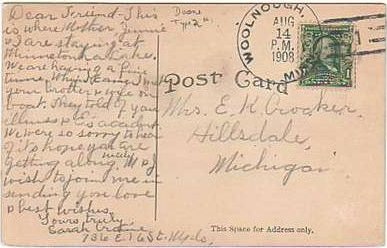 Dear Friend - This
is where Mother, Jennie
& I are staying at
Minnetonka Lake.
We are having a nice
time.
your brother was on
boat. They told of your
illness & accident
We were so sorry to hear
of it & hope you are
getting along nicely. M & J
wish to join me in
sending you love
& best wishes.
Yours truly
Sarah
736 E 16 St. Mpls,
Duane
Type 2
WOOLNOUGH,
AUG
14
P.M.
1908
MINN.
1
Post Card
Mrs. E. K. Crocker,
Hillsdale,
Michigan.
This Space for Address only.